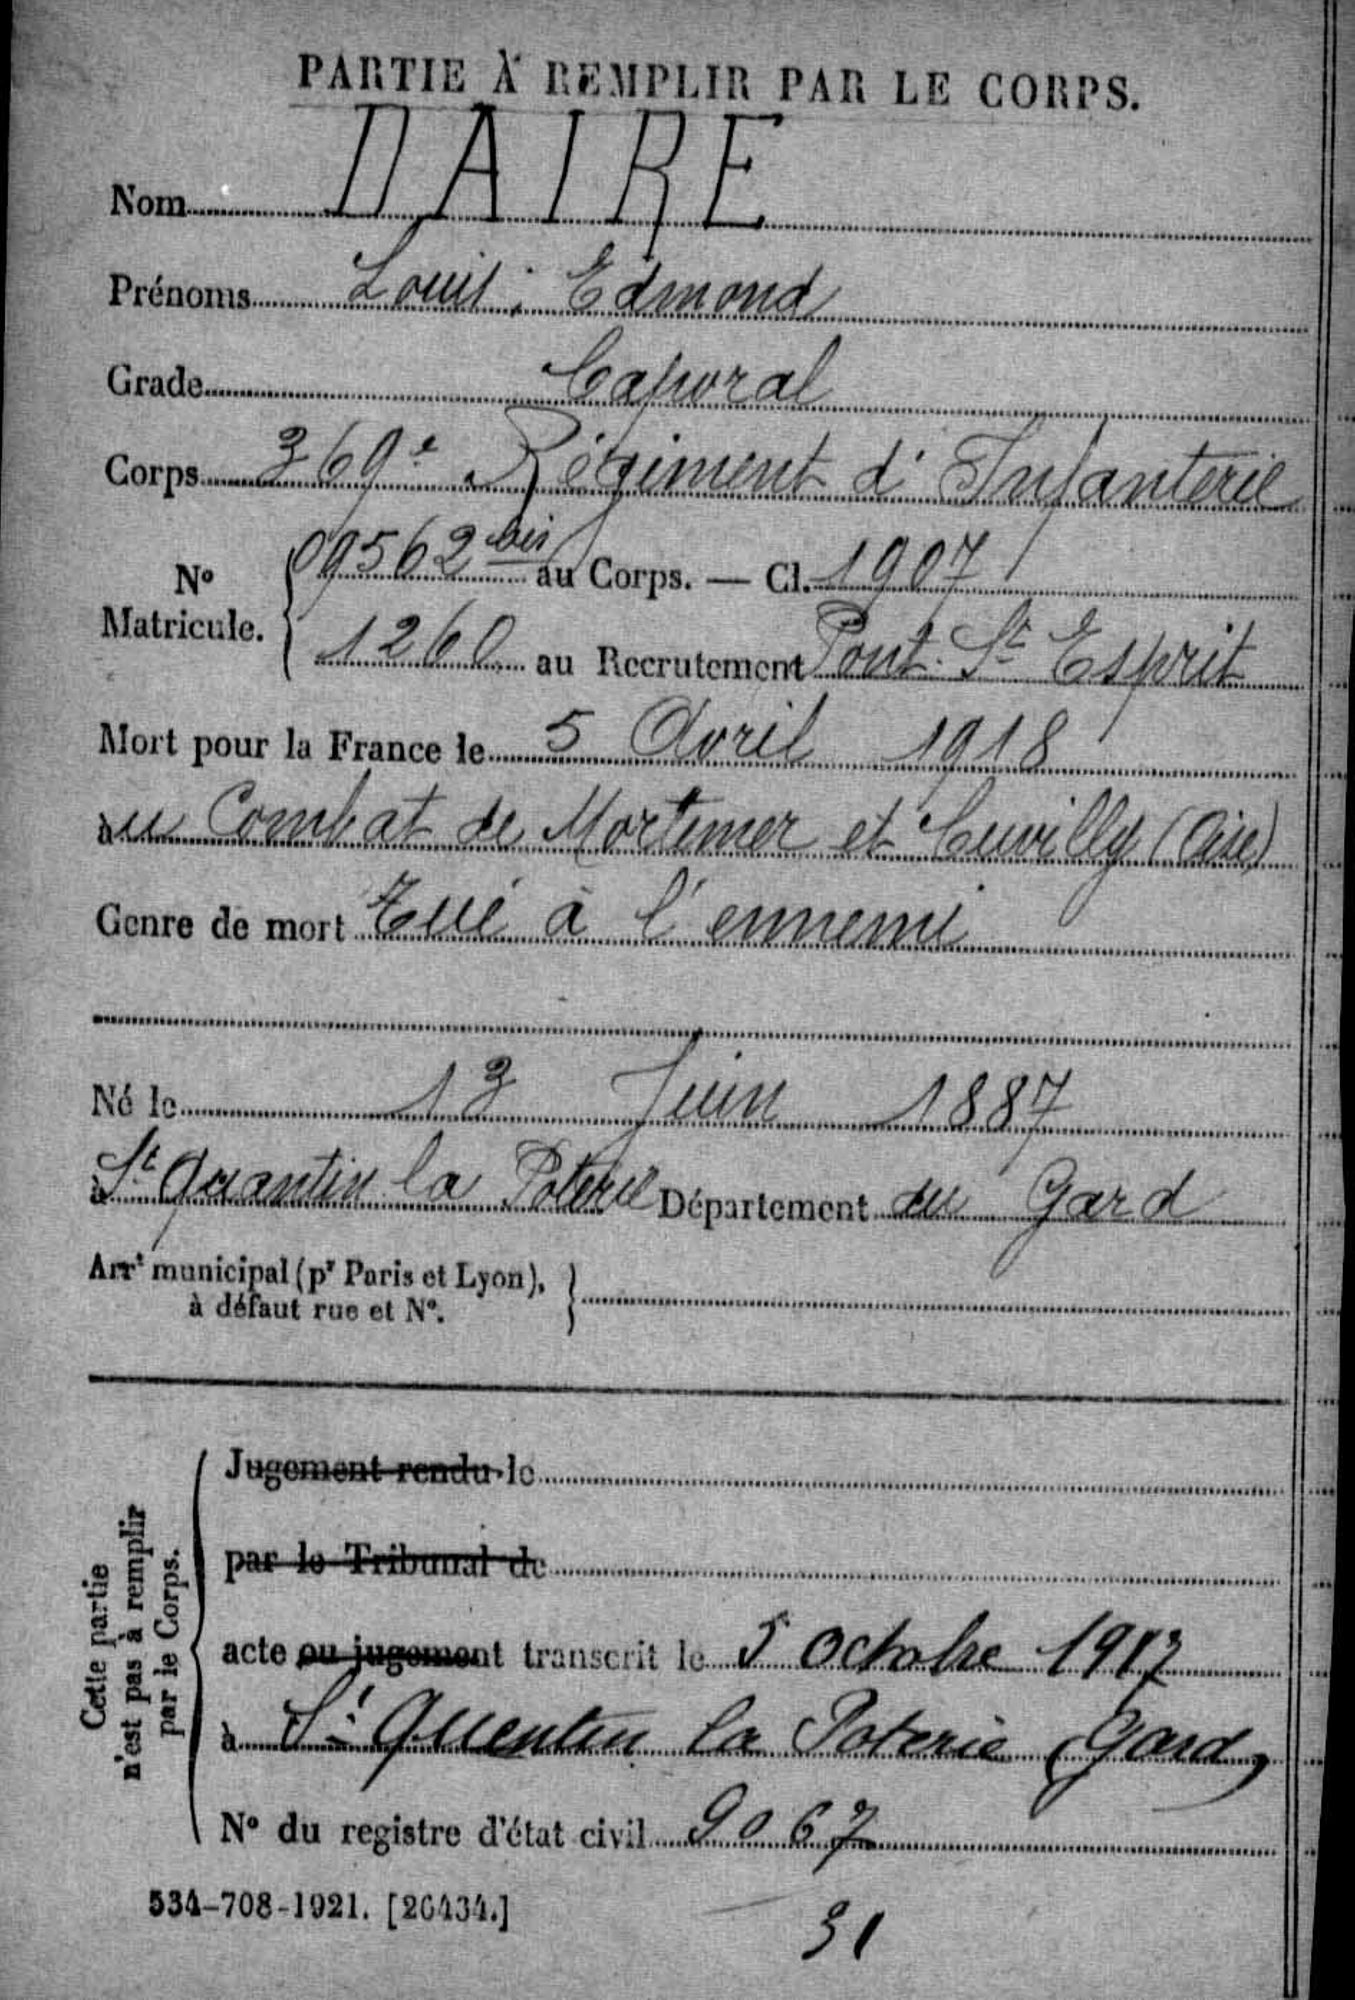 PARTIE À REMPLIR PAR LE CORPS.
Nom DAIRE
Prénoms Louis, Edmond
Grade Caporal
Corps 369e Régiment d'Infanterie
N° Matricule. { 09562 bis au Corps. — Cl. 1907
1260 au Recrutement Pont St Esprit
Mort pour la France le 5 Avril 1918
au Combat de Mortemer et Cuvilly (Oise)
Genre de mort Tué à l'ennemi
Né le 13 Juin 1887
à St Quantin la Poterie Département du Gard
Arrt municipal (pr Paris et Lyon), }
à défaut rue et N°.
Cette partie
n'est pas à remplir
par le Corps.
Jugement rendu le
par le Tribunal de
acte ou jugement transcrit le 5 Octobre
à St Quentin la Poterie (Gard)
N° du registre d'état civil 9067
534-708-1921. [26434.]
31